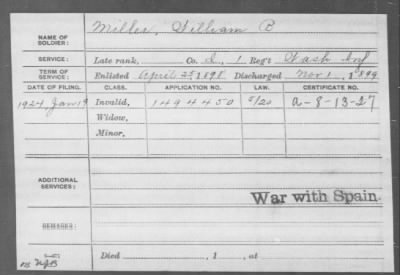 NAME OF SOLDIER: Miller, William B
SERVICE: Late rank, Co. I, 1 Reg't Wash Inf
TERM OF SERVICE: Enlisted April 25 1898 Discharged Nov 1, 1899
DATE OF FILING. CLASS. APPLICATION NO. LAW. CERTIFICATE NO.
1924 Jan 19 Invalid, 1494450 5/20 a-8-13-27
Widow,
Minor,
ADDITIONAL SERVICES:
War with Spain.
REMARKS:
Died , 1 , at